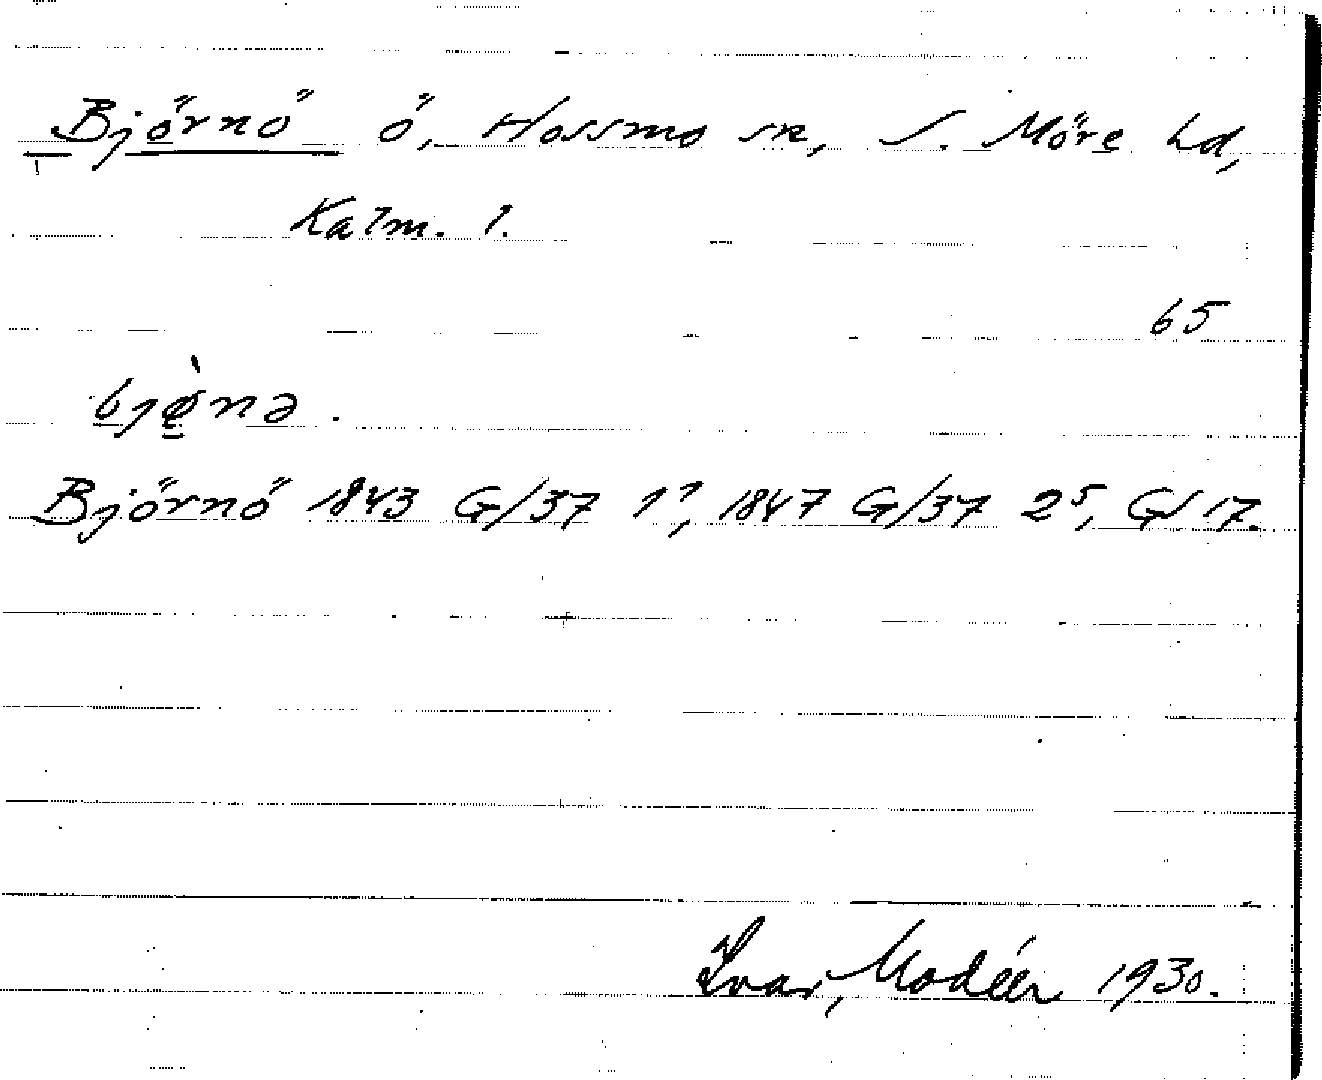 Björnö ö, Hossmo sn, S. Möre hd,
Kalm. l.
65
Björnö 1843 G/37 1?, 1847 G/37 2⁵, GS 17.
Ivar Modéer 1930.